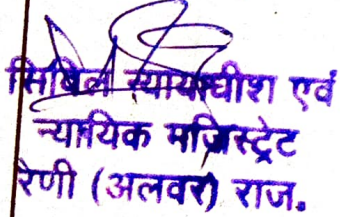 सिविल न्यायाधीश एवं
न्यायिक मजिस्ट्रेट
रैणी (अलवर) राज.